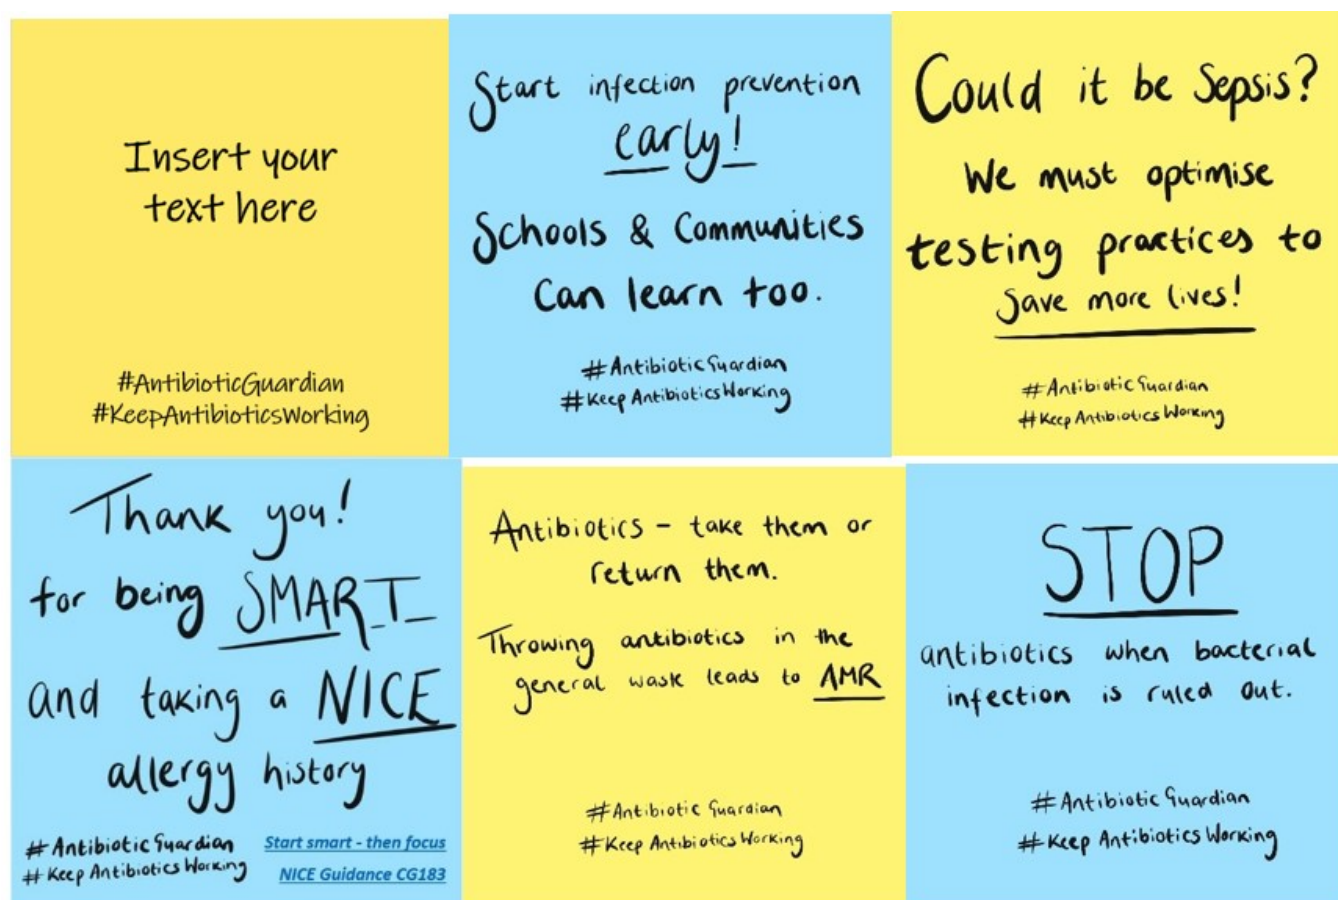 Insert your
text here
#AntibioticGuardian
#KeepAntibioticsWorking
Start infection prevention
early!
Schools & Communities
Can learn too.
#Antibiotic Guardian
#Keep Antibiotics Working
Could it be Sepsis?
We must optimise
testing practices to
Save more lives!
#Antibiotic Guardian
#Keep Antibiotics Working
Thank you!
for being SMART
and taking a NICE
allergy history
#Antibiotic Guardian
#Keep Antibiotics Working
Start smart - then focus
NICE Guidance CG183
Antibiotics - take them or
return them.
Throwing antibiotics in the
general waste leads to AMR
#Antibiotic Guardian
#Keep Antibiotics Working
STOP
antibiotics when bacterial
infection is ruled out.
#Antibiotic Guardian
#Keep Antibiotics Working